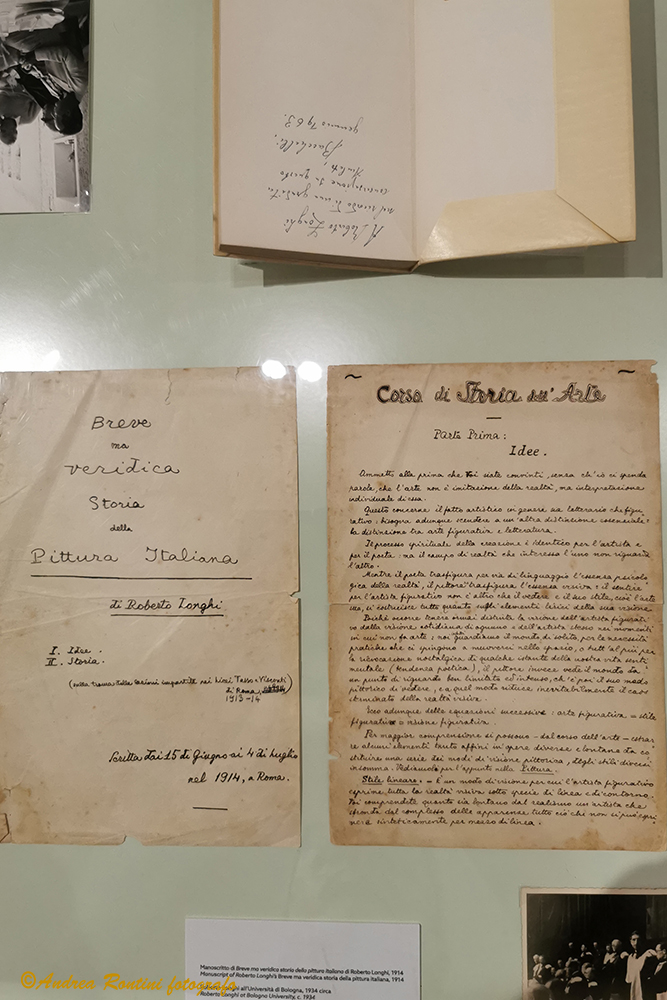 A Roberto Longhi
nel ricordo di una gradita
conversazione su questo
Bacchelli,
gennaio 1963.
Breve
ma
veridica
Storia
della
Pittura Italiana
di Roberto Longhi
I. Idee.
II. Storia.
(sulla trama delle lezioni impartite nei licei Tasso e Visconti
di Roma,
1913-14
Scritta dai 15 di Giugno ai 4 di Luglio
nel 1914, a Roma.
Corso di Storia dell'Arte
Parte Prima:
Idee.
Ammetto alla prima che voi siate convinti, senza ch'io ci spenda
parole, che l'arte non è imitazione della realtà, ma interpretazione
individuale di essa.
Questo concerne il fatto artistico in genere sia letterario che figu
rativo: bisogna adunque scendere a un'altra distinzione essenziale:
la distinzione tra arte figurativa e letteratura.
Il processo spirituale della creazione è identico per l'artista e
per il poeta: ma il campo di realtà che interessa l'uno non riguarda
l'altro.
Mentre il poeta trasfigura per via di linguaggio l'essenza psicolo
gica della realtà, il pittore trasfigura l'essenza visiva: il sentire
per l'artista figurativo non è altro che il vedere e il suo stile, cioè l'arte
sua, si costruisce tutto quanto sugli elementi lirici della sua visione.
Poichè occorre tenere ormai distinta la visione dell'artista figurati
vo dalla visione cotidiana di ognuno o dell'artista stesso nei momenti
in cui non fa arte; noi guardiamo il mondo di solito per le necessità
pratiche che ci spingono a muoverci nello spazio, o tutt'al più per
la rievocazione nostalgica di qualche istante della nostra vita senti
mentale (tendenza poetica), il pittore invece vede il mondo da
un punto di riguardo ben limitato ed intenso, ch'è poi il suo modo
pittorico di vedere, e a quel modo riduce inevitabilmente il caos
sterminato della realtà visiva.
Ecco adunque delle equazioni successive: arte figurativa = stile
figurativo = visione figurativa.
Per maggior comprensione si possono - dal corso dell'arte - estrar
re alcuni elementi tanto affini in opere diverse e lontane da co
stituire una serie dei modi di visione pittorica, degli stili diversi
insomma. Vediamoli per l'appunto nella Pittura.
Stile lineare. - È un modo di visione per cui l'artista figurativo
esprime tutta la realtà visiva sotto specie di linea e di contorno.
Voi comprendete quanto sia lontano dal realismo un artista che
sfronda dal complesso delle apparenze tutto ciò che non si può espri
mere sinteticamente per mezzo di linea.
Manoscritto di Breve ma veridica storia della pittura italiana di Roberto Longhi, 1914
Manuscript of Roberto Longhi's Breve ma veridica storia della pittura italiana, 1914
Roberto Longhi all'Università di Bologna, 1934 circa
Roberto Longhi at Bologna University, c. 1934
©Andrea Rontini fotografo